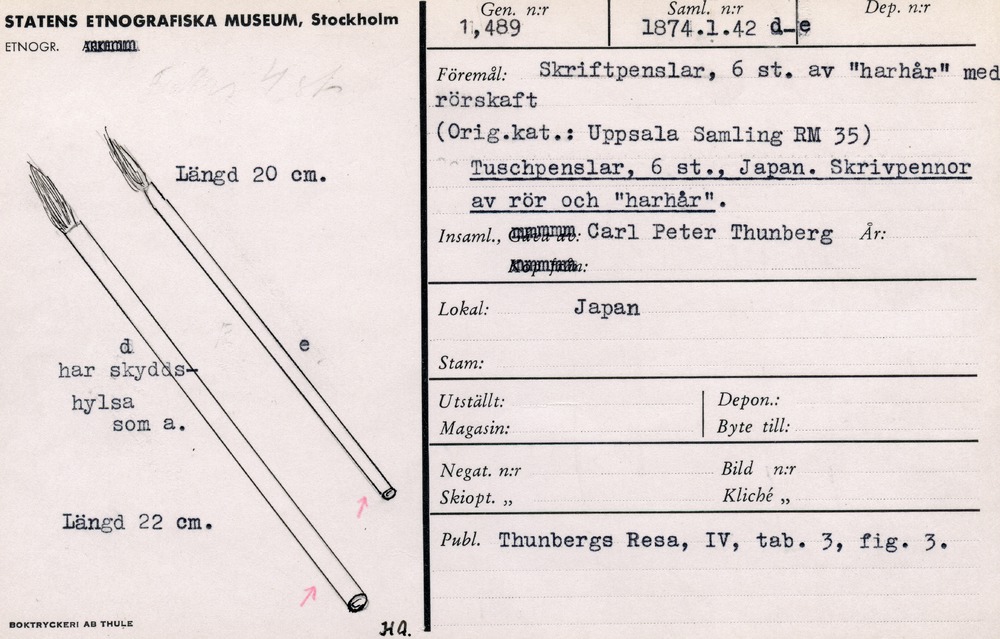 STATENS ETNOGRAFISKA MUSEUM, Stockholm
ETNOGR.
Längd 20 cm.
d
e
har skydds-
hylsa
som a.
Längd 22 cm.
BOKTRYCKERI AB THULE
HA.
Gen. n:r
Saml. n:r
Dep. n:r
11,489
1874.1.42 d-e
Föremål: Skriftpenslar, 6 st. av "harhår" med
rörskaft
(Orig.kat.: Uppsala Samling RM 35)
Tuschpenslar, 6 st., Japan. Skrivpennor
av rör och "harhår".
Insaml., Gåva av: Carl Peter Thunberg År:
Köp från:
Lokal: Japan
Stam:
Utställt:
Depon.:
Magasin:
Byte till:
Negat. n:r
Bild n:r
Skiopt. „
Kliché „
Publ. Thunbergs Resa, IV, tab. 3, fig. 3.